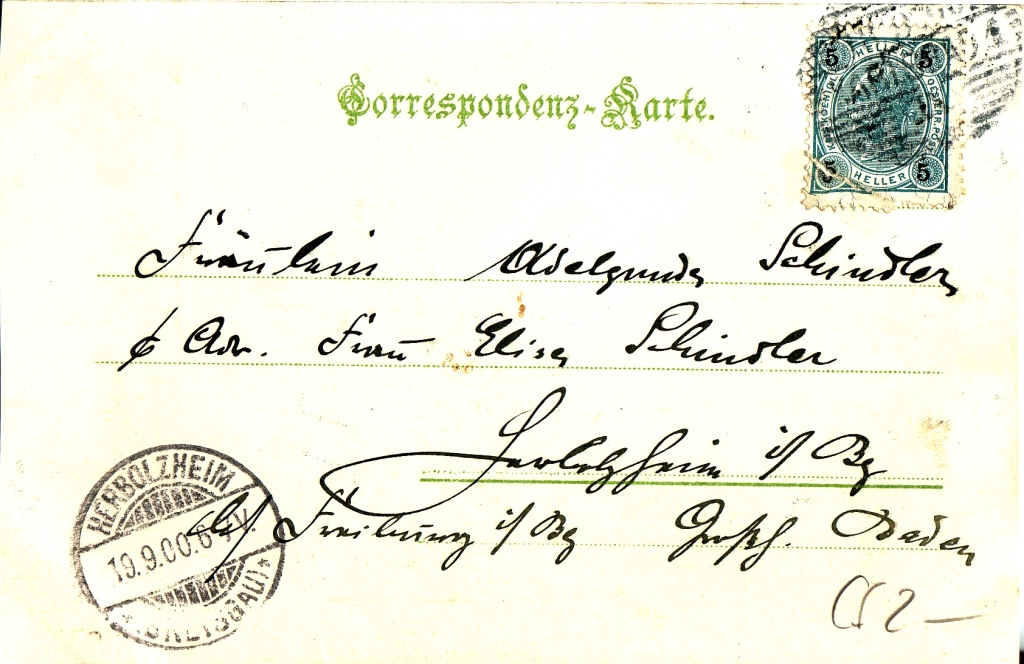 Correspondenz-Karte.
5 HELLER 5
KAIS. KÖNIGL. OESTERR. POST
5 HELLER 5
Fräulein Adelgunde Schindler
p Adr. Frau Elise Schindler
Herbolzheim i/ Bg
b/ Freiburg i/ Bg Großh. Baden
HERBOLZHEIM
19.9.00.6-7V.
(BREISGAU)*